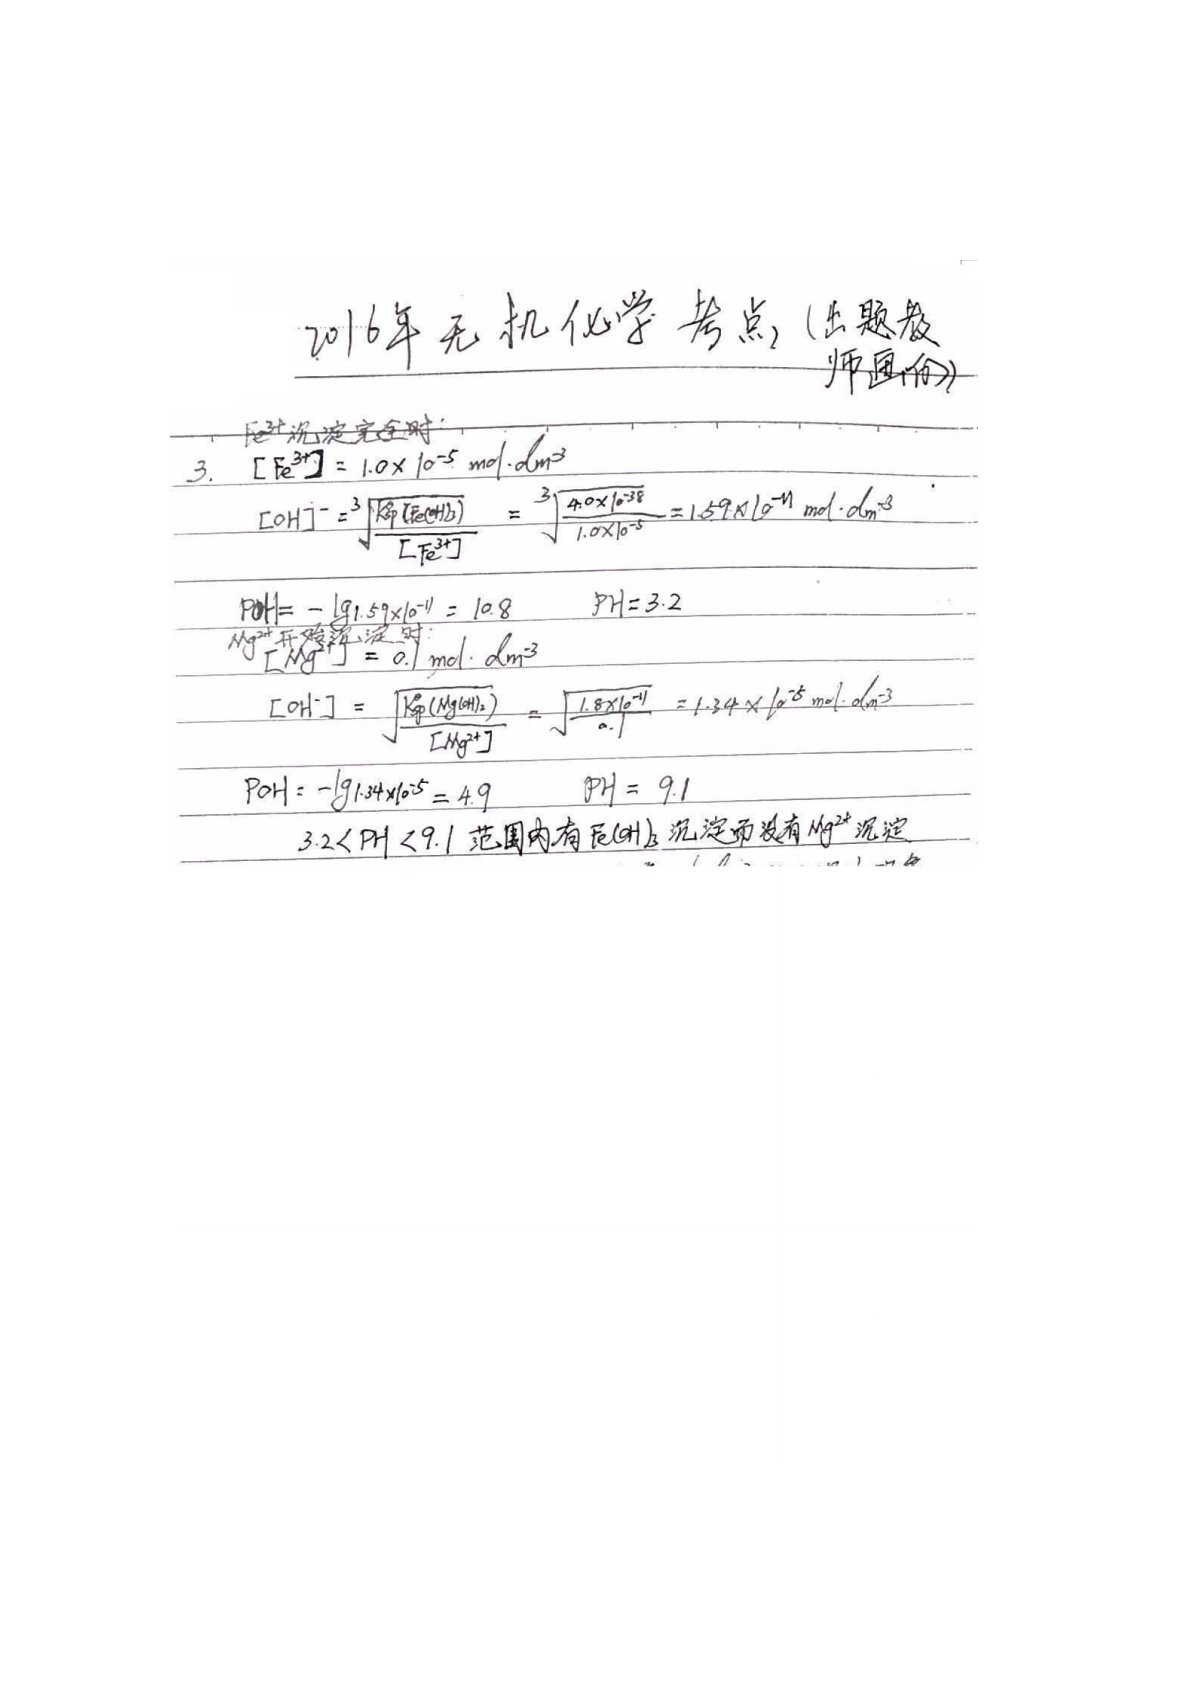 2016年无机化学考点(出题教
师画的)
Fe³⁺沉淀完全时:
3. [Fe³⁺] = 1.0×10⁻⁵ mol·dm⁻³
[OH]⁻ = ³√(Ksp(Fe(OH)₃)/[Fe³⁺]) = ³√(4.0×10⁻³⁸/1.0×10⁻⁵) = 1.59×10⁻¹¹ mol·dm⁻³
POH = -lg1.59×10⁻¹¹ = 10.8 PH=3.2
Mg²⁺开始沉淀时:
[Mg²⁺] = 0.1 mol·dm⁻³
[OH⁻] = √(K°sp(Mg(OH)₂)/[Mg²⁺]) = √(1.8×10⁻¹¹/0.1) = 1.34×10⁻⁵ mol·dm⁻³
POH = -lg1.34×10⁻⁵ = 4.9 PH = 9.1
3.2<PH<9.1 范围内有Fe(OH)₃沉淀而没有Mg²⁺沉淀